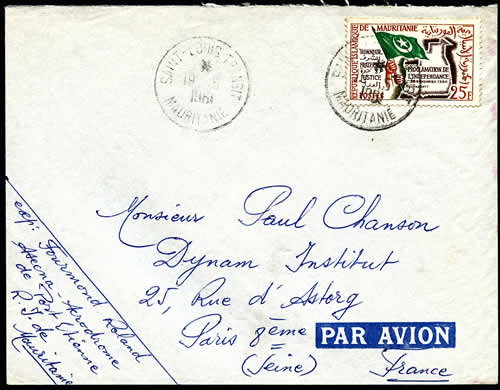 SAINT-LOUIS-TRANSIT
19
1961
MAURITANIE
REPUBLIQUE ISLAMIQUE
DE MAURITANIE
HONNEUR
FRATERNITE
JUSTICE
PROCLAMATION DE
L'INDEPENDANCE
POSTES
25F
MAURITANIE
Monsieur Paul Chanson
Dynam Institut
25, Rue d'Astorg
Paris 8ème
PAR AVION
(Seine) France
exp: Fourmond Roland
Asecna - Aérodrome
de Port Etienne
R.I. de
Mauritanie